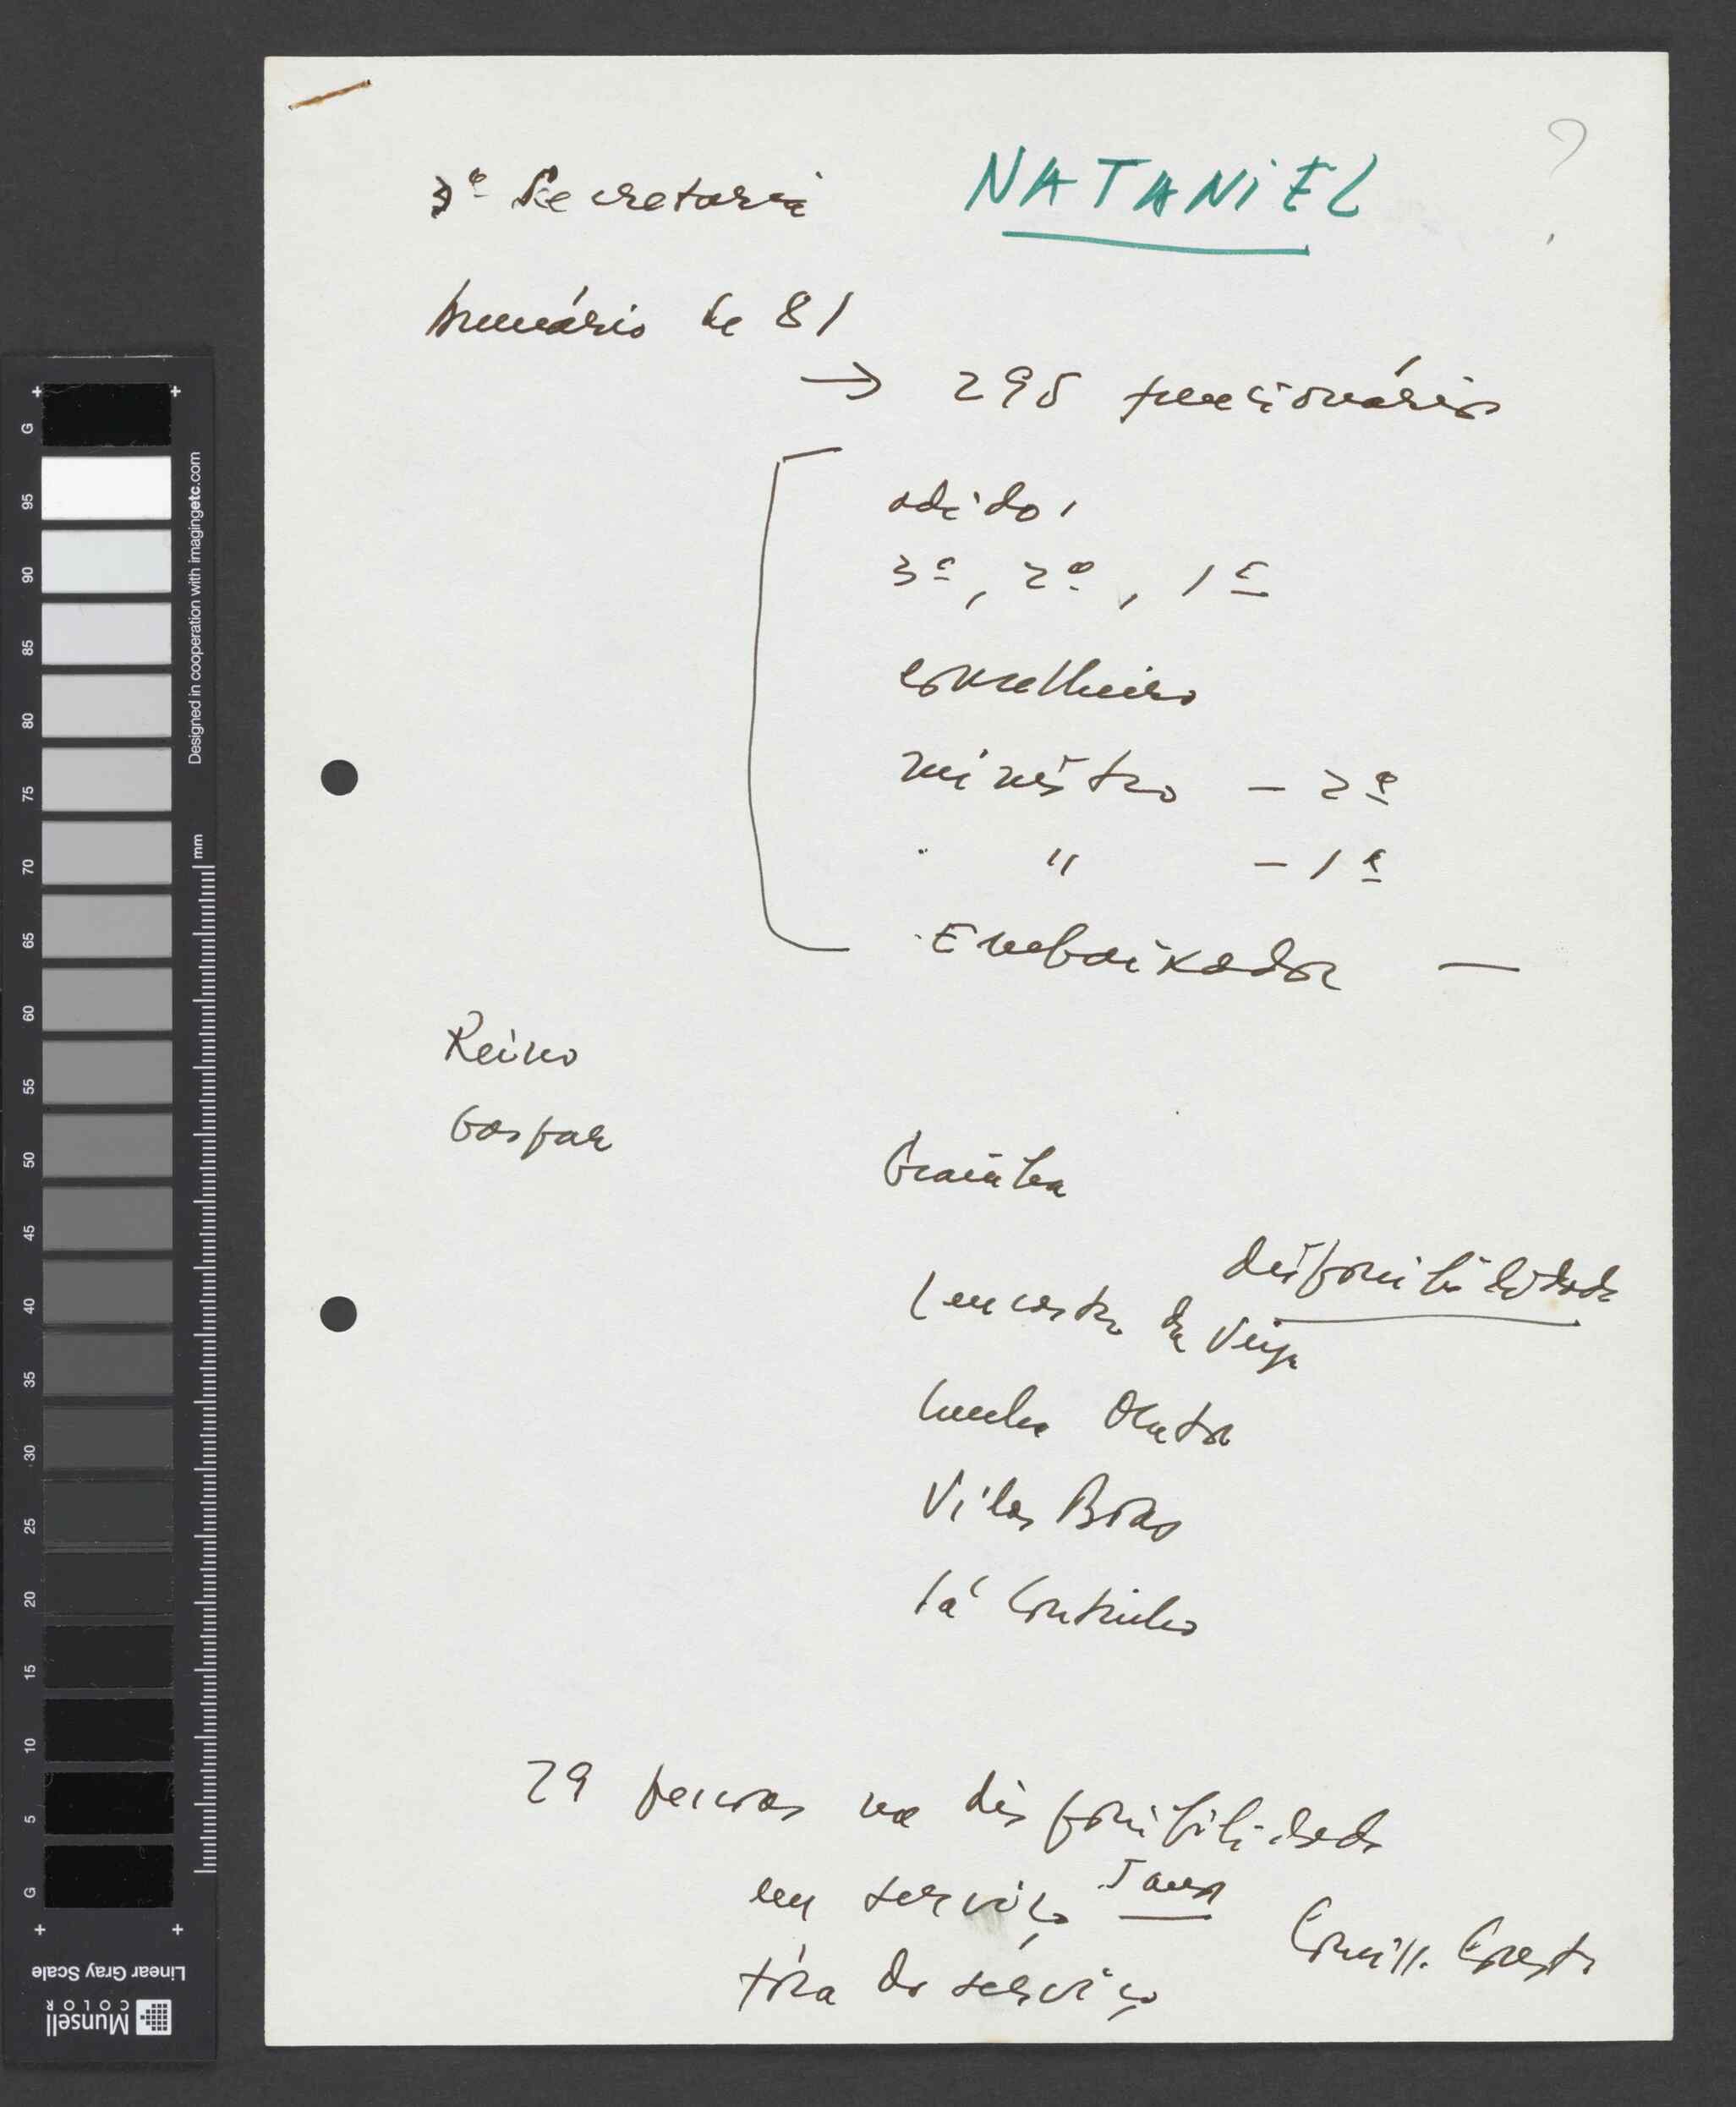 3º Secretaria
NATANiEL
?
Anuário de 81
→ 295 funcionários
adido,
3º, 2º, 1º
conselheiro
ministro - 2ª
" - 1ª
Embaixador —
Reino
Gaspar
Grainha
disponibilidade
Lencastre da Veiga
Cunha
Vilas Boas
Sá Coutinho
29 pessoas na disponibilidade
em serviço
fora do serviço
Designed in cooperation with imagingetc.com
mm
G
95
90
85
80
75
70
65
60
55
50
45
40
35
30
25
20
15
10
5
G
Linear Gray Scale
Munsell
COLOR